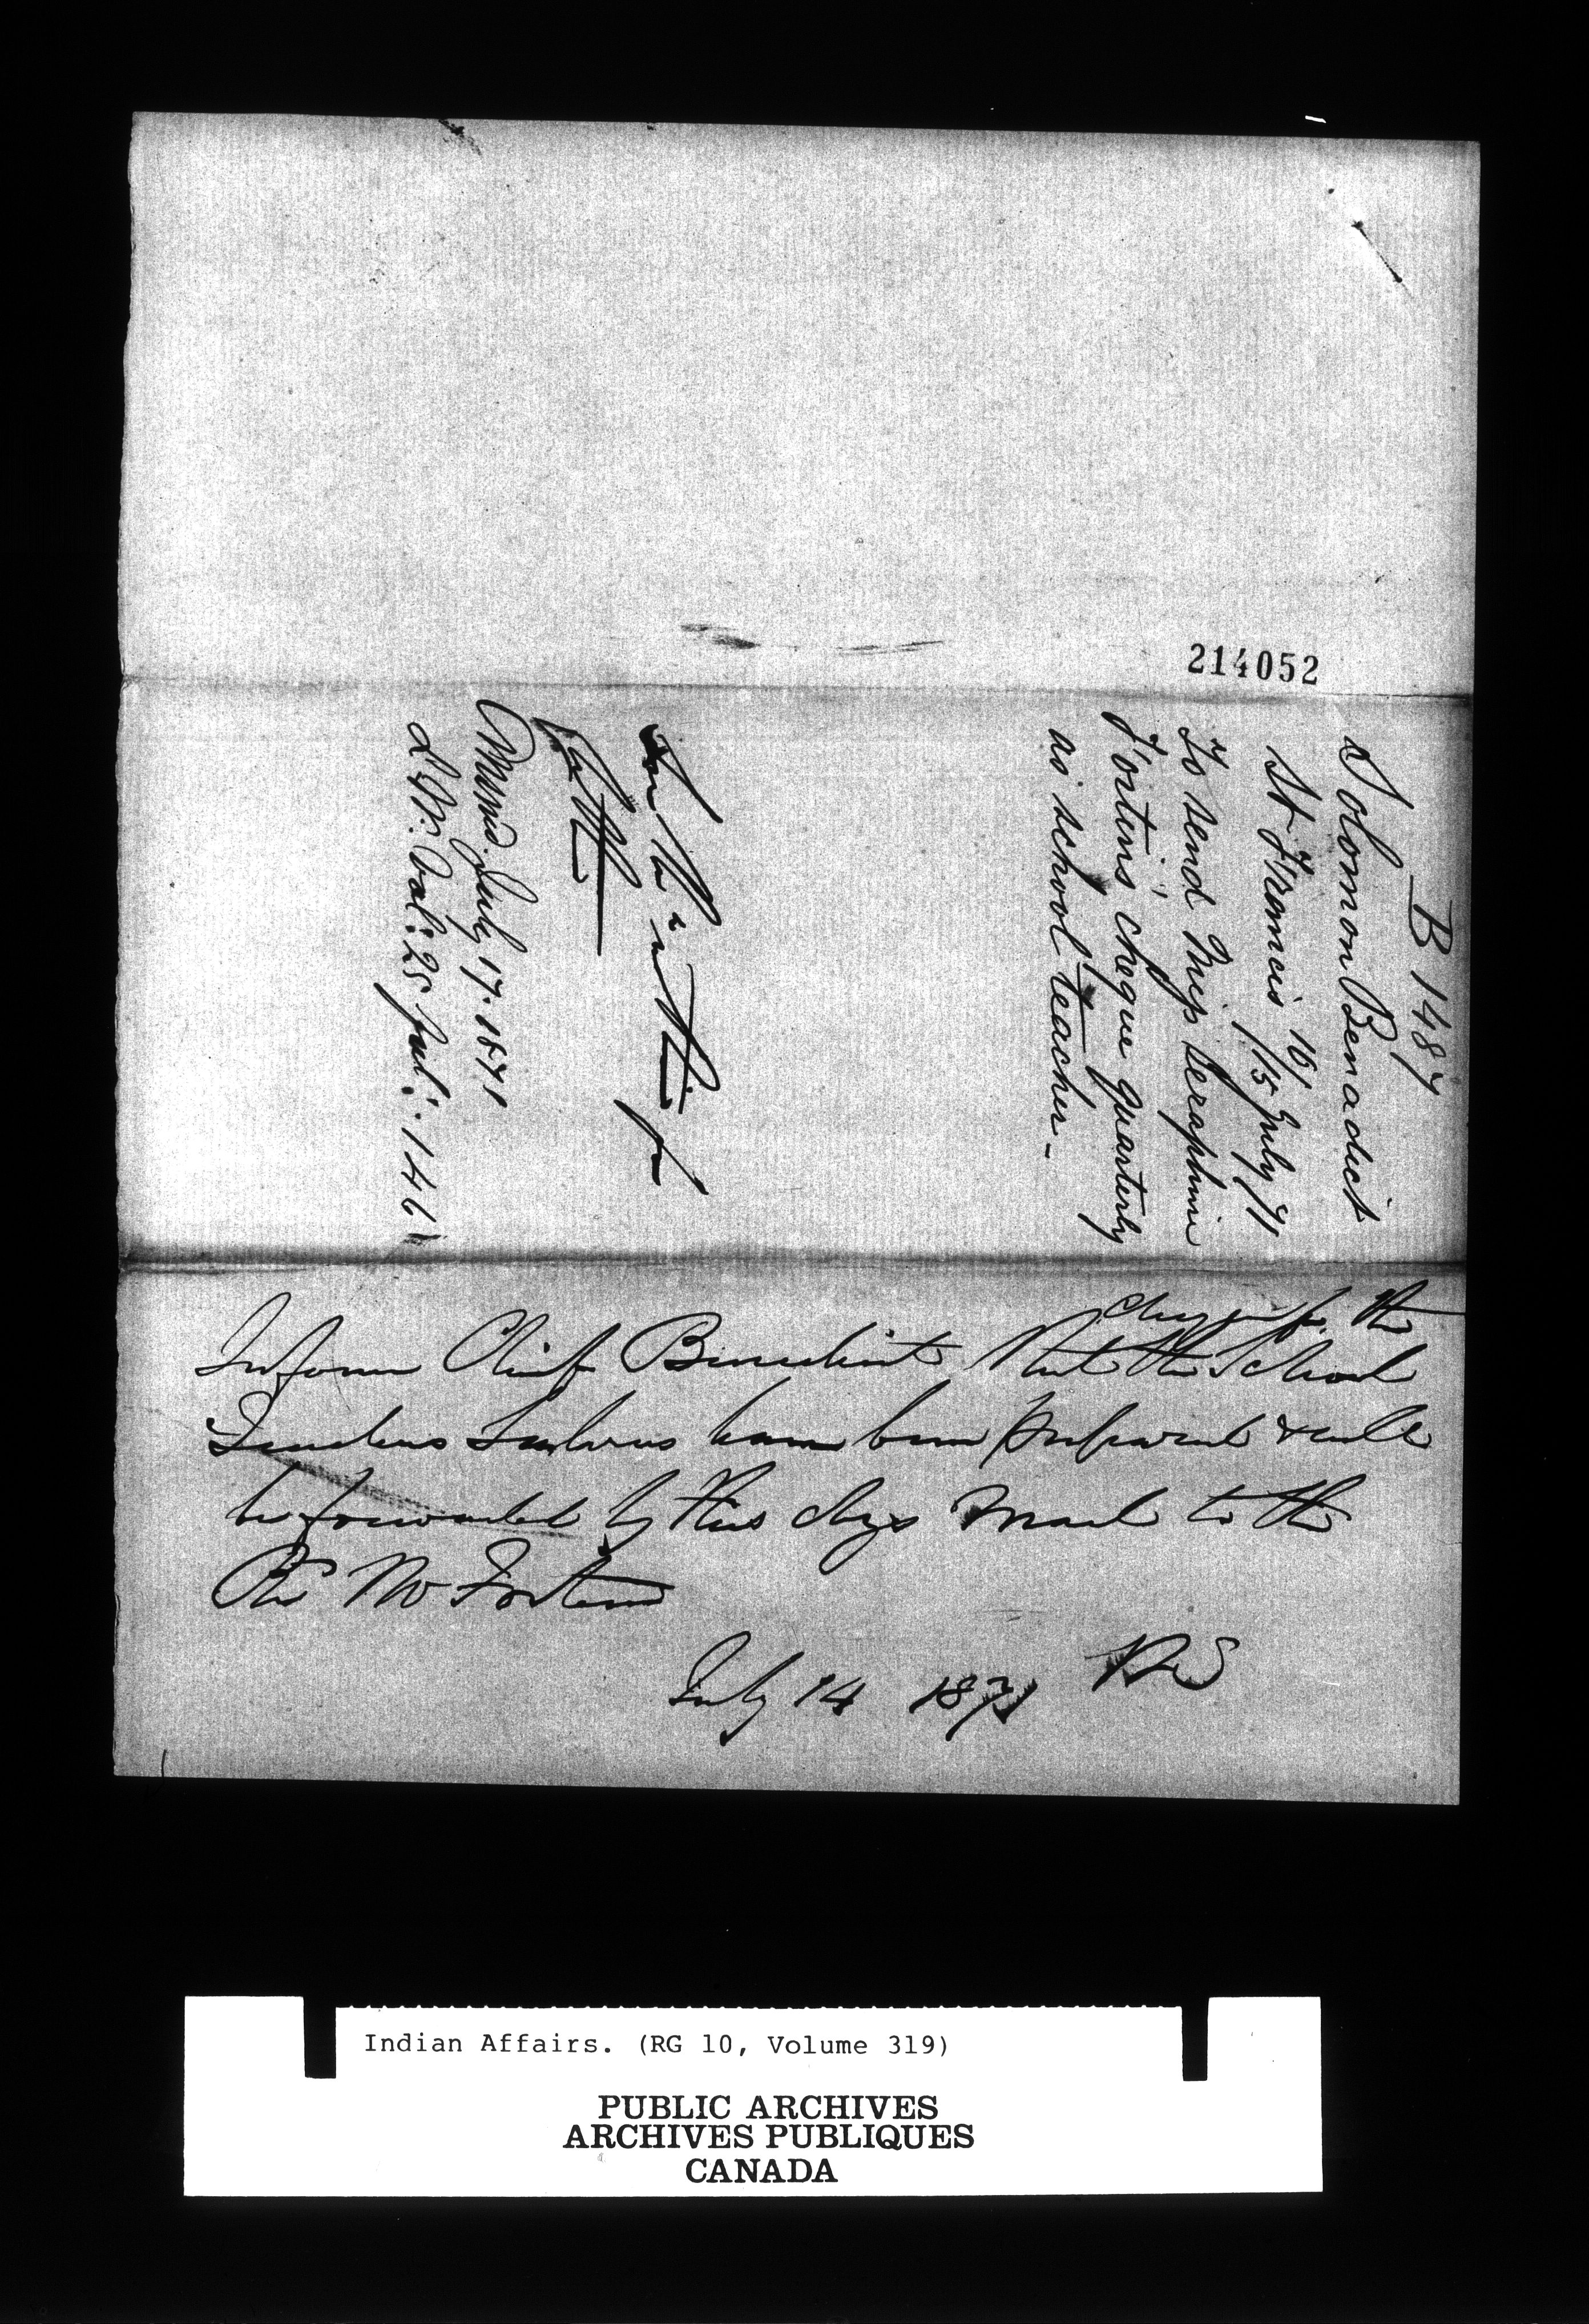 214052
B 1487
Solomon Benadict
St Francis 10/15 July/71
To send Miss Seraphine
Fortin's cheque quarterly
as school teacher -
Answd. July 17. 1871
L. W. Vol: 25 fol: 146
Cheques for the
Inform Chief Benedict that the School
Teachers Salaries have been prepared & will
be forwarded by this days Mail to the
Mr Fortin
July 14 1871
Indian Affairs. (RG 10, Volume 319)
PUBLIC ARCHIVES
ARCHIVES PUBLIQUES
CANADA